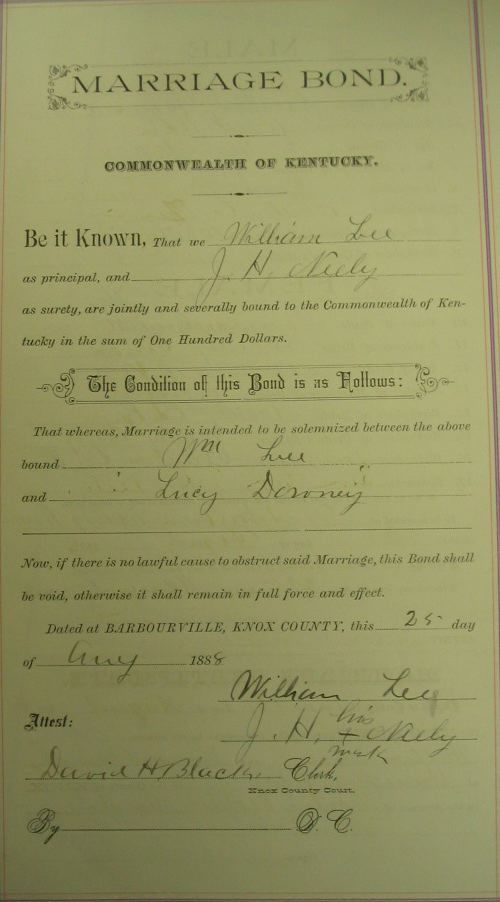 MARRIAGE BOND.
COMMONWEALTH OF KENTUCKY.
Be it Known, That we William Lee
as principal, and J. H. Neely
as surety, are jointly and severally bound to the Commonwealth of Ken-
tucky in the sum of One Hundred Dollars.
The Condition of this Bond is as Follows:
That whereas, Marriage is intended to be solemnized between the above
bound Wm Lee
and Lucy Downey
Now, if there is no lawful cause to obstruct said Marriage, this Bond shall
be void, otherwise it shall remain in full force and effect.
Dated at BARBOURVILLE, KNOX COUNTY, this 25 day
of Aug 1888
William Lee
Attest:
J. H. his + mark Neely
David H Black Clerk,
Knox County Court.
By D. C.